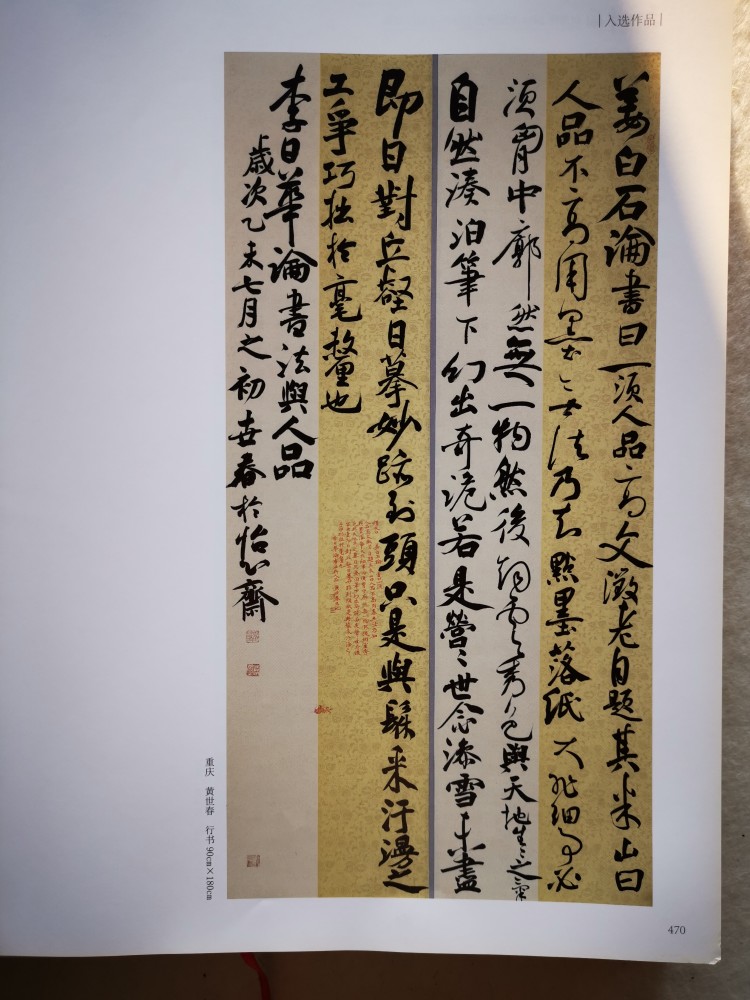 入选作品
姜白石論書曰一須人品高文徵老自題其米山曰
人品不高用墨々無法乃知點墨落紙大非細事必
須胷中廓然無一物然後烟雲之秀色與天地生々之氣
自然湊泊筆下幻出奇詭若是營々世念澡雪未盡
即日對丘壑日摹妙跡到頭只是與髹采汙漫之
工爭巧拙於毫釐也
李日華論書法與人品
歲次乙未七月之初世春於怡心齋
重庆 黄世春 行书 90cm×180cm
470